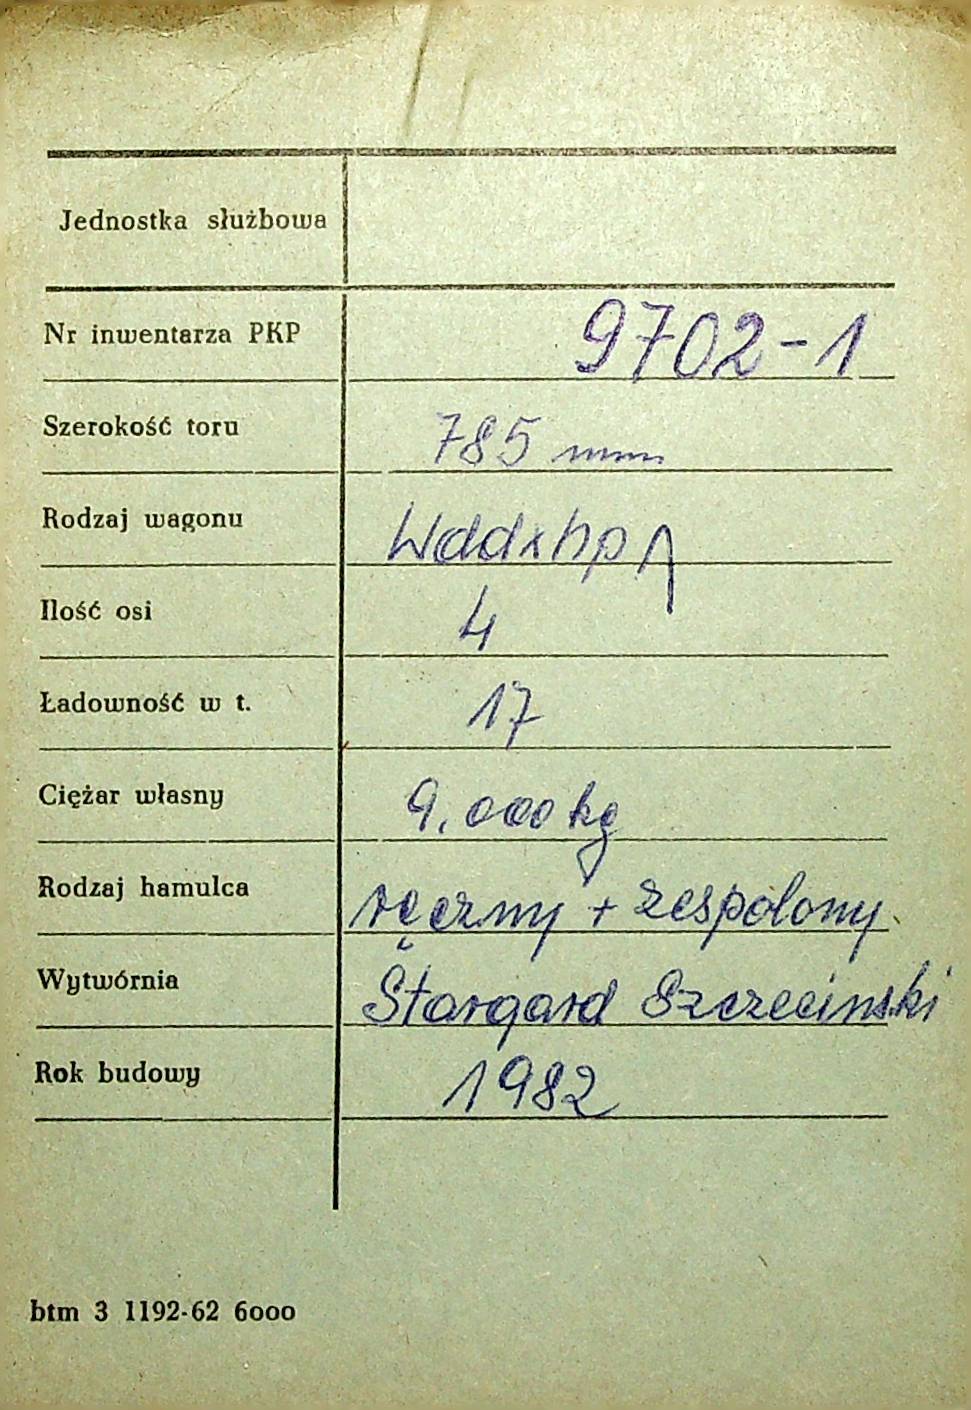 Jednostka służbowa
Nr inwentarza PKP 9702-1
Szerokość toru 785 mm
Rodzaj wagonu Wddxhp
Ilość osi 4
Ładowność w t. 17
Ciężar własny 9.000 kg
Rodzaj hamulca ręczny + zespolony
Wytwórnia Stargard Szczecinski
Rok budowy 1982
btm 3 1192-62 6000